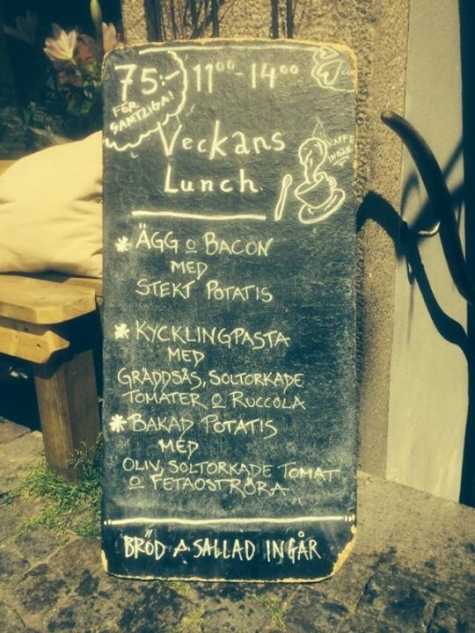 75:-
FÖR
SAMTLIGA!
11⁰⁰-14⁰⁰
Veckans
Lunch.
KAFFE
INGÅR
* ÄGG o BACON
MED
STEKT POTATIS
* KYCKLINGPASTA
MED
GRÄDDSÅS, SOLTORKADE
TOMATER o RUCCOLA
* BAKAD POTATIS
MED
OLIV, SOLTORKADE TOMAT
o FETAOSTRÖRA
BRÖD & SALLAD INGÅR